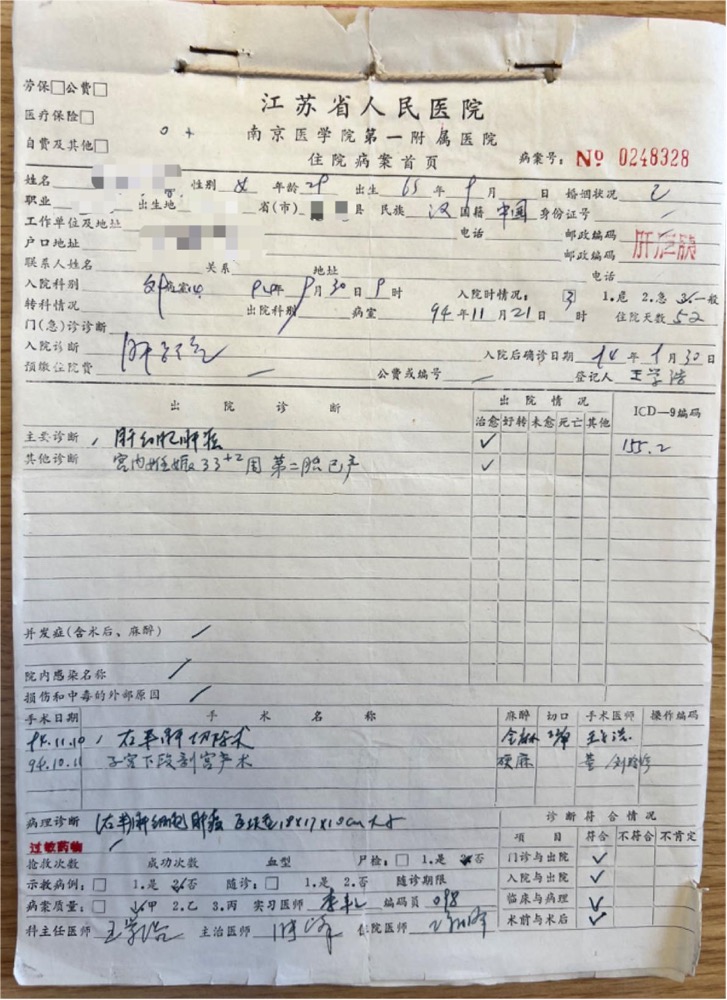 劳保□公费□
医疗保险□
自费及其他□
0 +
江苏省人民医院
南京医学院第一附属医院
住院病案首页
病案号: № 0248328
姓名 性别 女 年龄 29 出生 65 年 9 月 日 婚姻状况 2
职业 出生地 省(市) 县 民族 汉 国籍 中国 身份证号
工作单位及地址 电话 邮政编码
户口地址 邮政编码
肝
联系人姓名 关系 地址 电话
入院科别 94年 9 月 30 日 9 时 入院时情况: 3 1.危 2.急 3.一般
转科情况 出院科别 病室 94 年 11 月 21 日 时 住院天数 52
门(急)诊诊断
入院诊断 入院后确诊日期 94 年 9 月 30 日
预缴住院费 公费或编号 登记人 王学浩
出院诊断 出院情况 ICD-9编码
治愈 好转 未愈 死亡 其他
主要诊断 1 肝细胞肝癌 ✓ 155.2
其他诊断 宫内妊娠33+2周 第二胎已产 ✓
并发症(含术后、麻醉) /
院内感染名称 /
损伤和中毒的外部原因 /
手术日期 手术名称 麻醉 切口 手术医师 操作编码
94.11.10 1 右半肝切除术 全麻 王学浩
94.10.11 子宫下段剖宫产术 硬麻
病理诊断 (右半肝细胞肝癌 18×17×10cm大小
过敏药物
诊断符合情况
项目 符合 不符合 不肯定
门诊与出院 ✓
入院与出院 ✓
临床与病理 ✓
术前与术后 ✓
抢救次数 成功次数 血型 尸检:□ 1.是 2.否
示教病例:□ 1.是 2.否 随诊:□ 1.是 2.否 随诊期限
病案质量:□ 1.甲 2.乙 3.丙 实习医师 编码员 098
科主任医师 王学浩 主治医师 住院医师